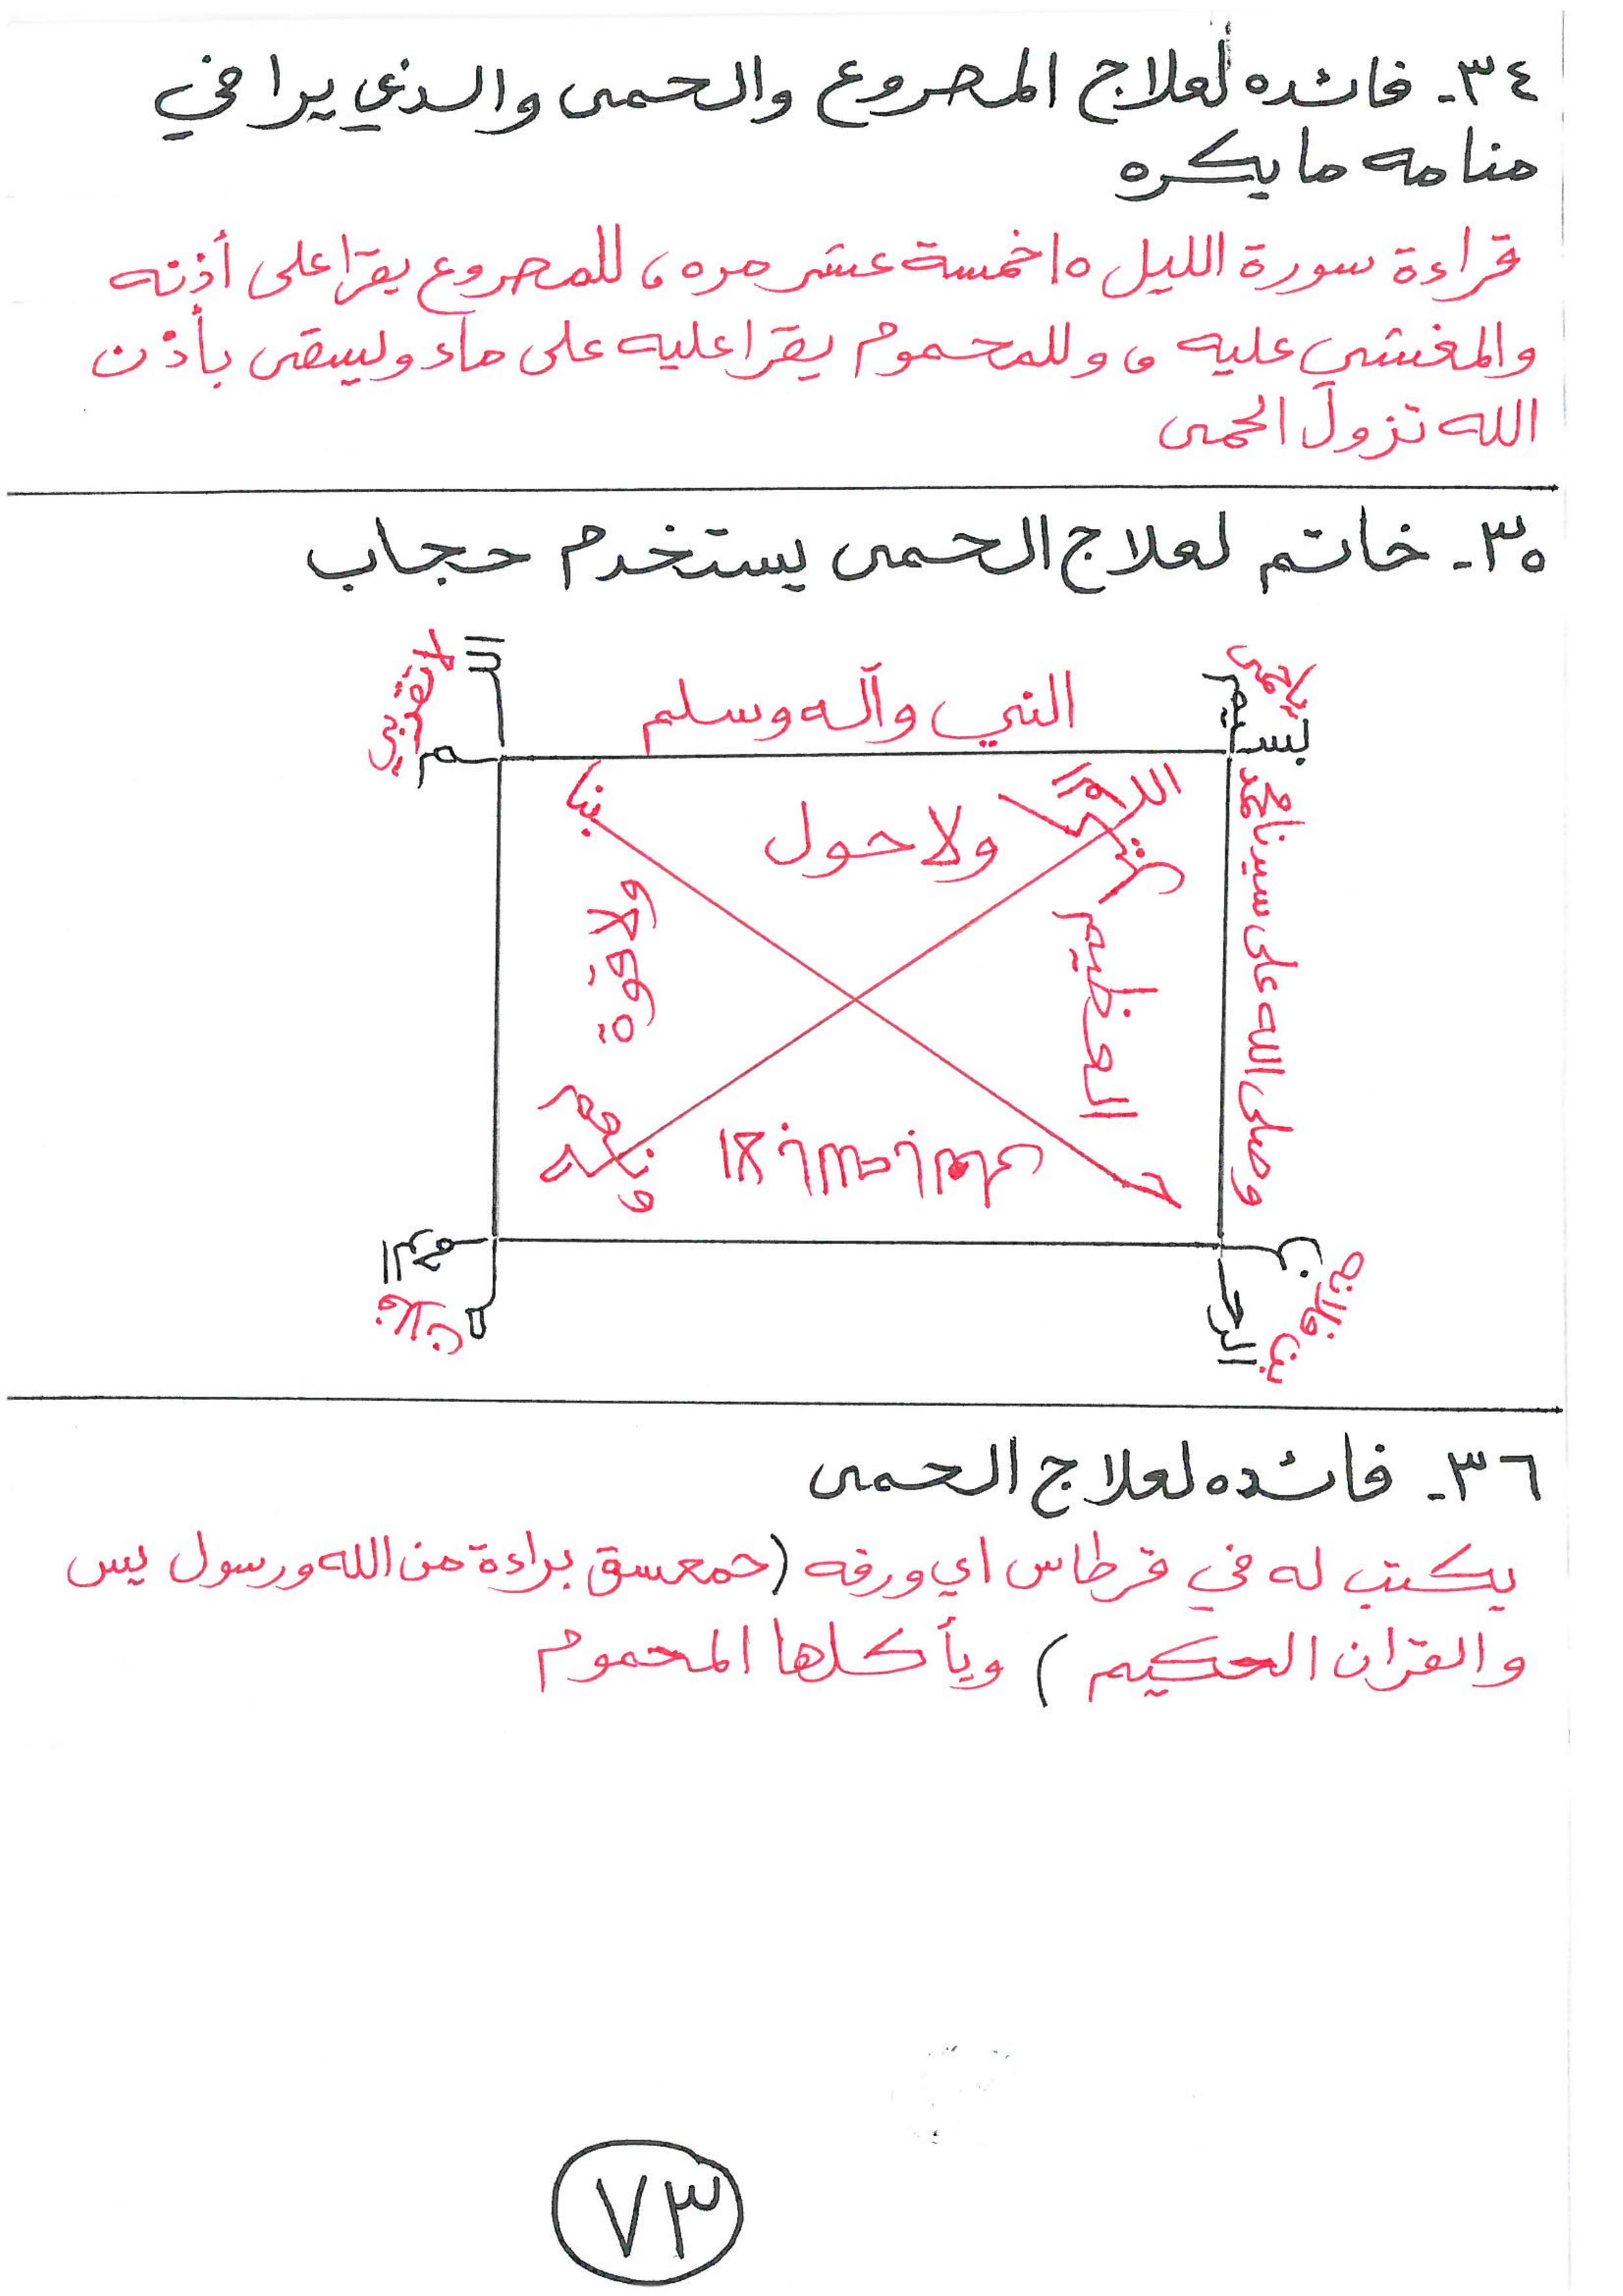 ٣٤- فائده لعلاج المصروع والحمى والذي يرا في
منامه ما يكره
قراءة سورة الليل ١٥ خمسة عشر مره ، للمصروع يقرا على أذنه
والمغشي عليه ، وللمحموم يقرا عليه على ماء وليسقى بأذن
الله تزول الحمى
٣٥- خاتم لعلاج الحمى يستخدم حجاب
لا تقربي
ياحمى
النبي وآله وسلم
بسم
وصلى الله على سيدنا محمد
الله
ولا حول
ولا قوة
العظيم
ونعم
فلان
بن فلانه
٣٦- فائده لعلاج الحمى
يكتب له في قرطاس اي ورقه (حمعسق براءة من الله ورسول يس
والقران الحكيم ) ويأكلها المحموم
٧٣